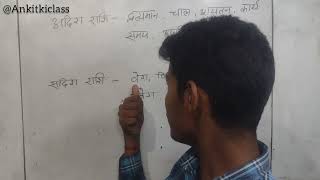 @Ankitkiclass
अदिश राशि - द्रव्यमान, चाल, आयतन, कार्य
समय,
सदिश राशि - वेग,